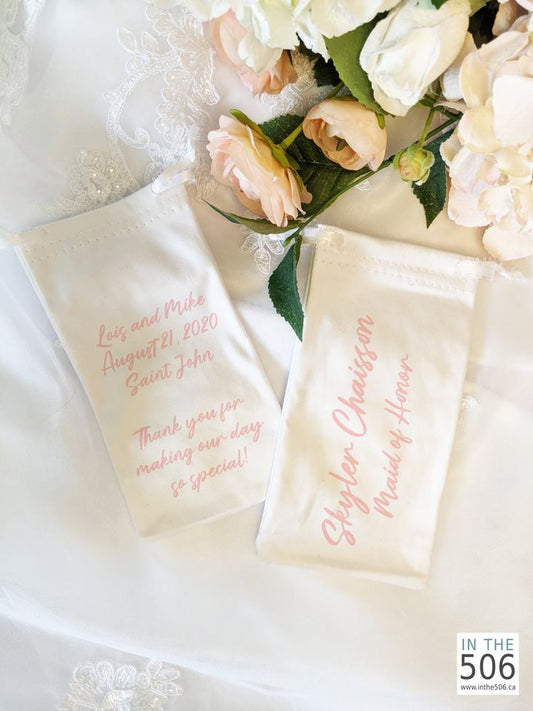 Lois and Mike
August 21, 2020
Saint John
Thank you for
making our day
so special!
Skyler Chaisson
Maid of Honor
IN THE
506
www.inthe506.ca